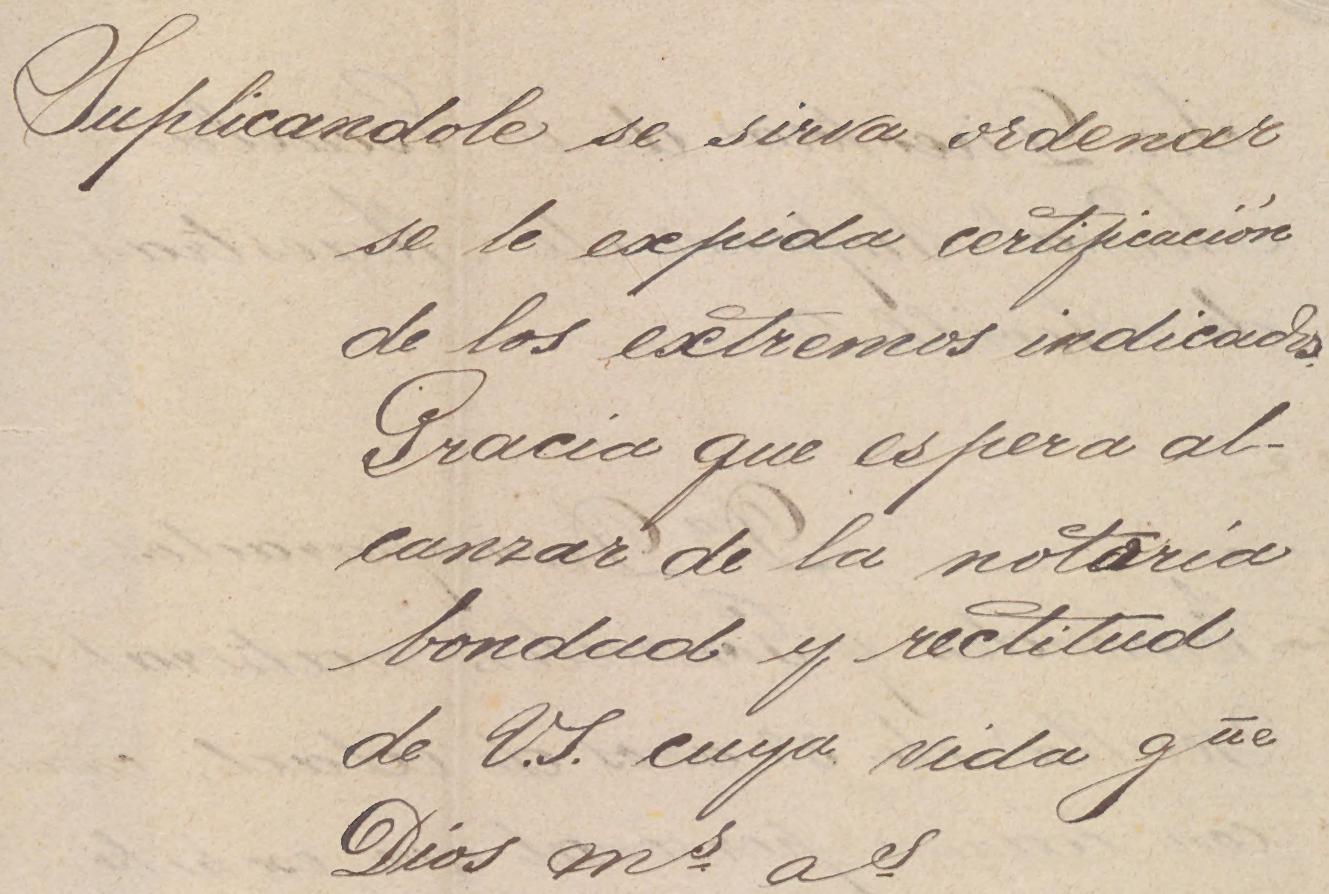 Suplicandole se sirva ordenar
se le expida certificación
de los extremos indicados.
Gracia que espera al-
canzar de la notoria
bondad y rectitud
de V.S. cuya vida gūe
Dios mˢ aˢ